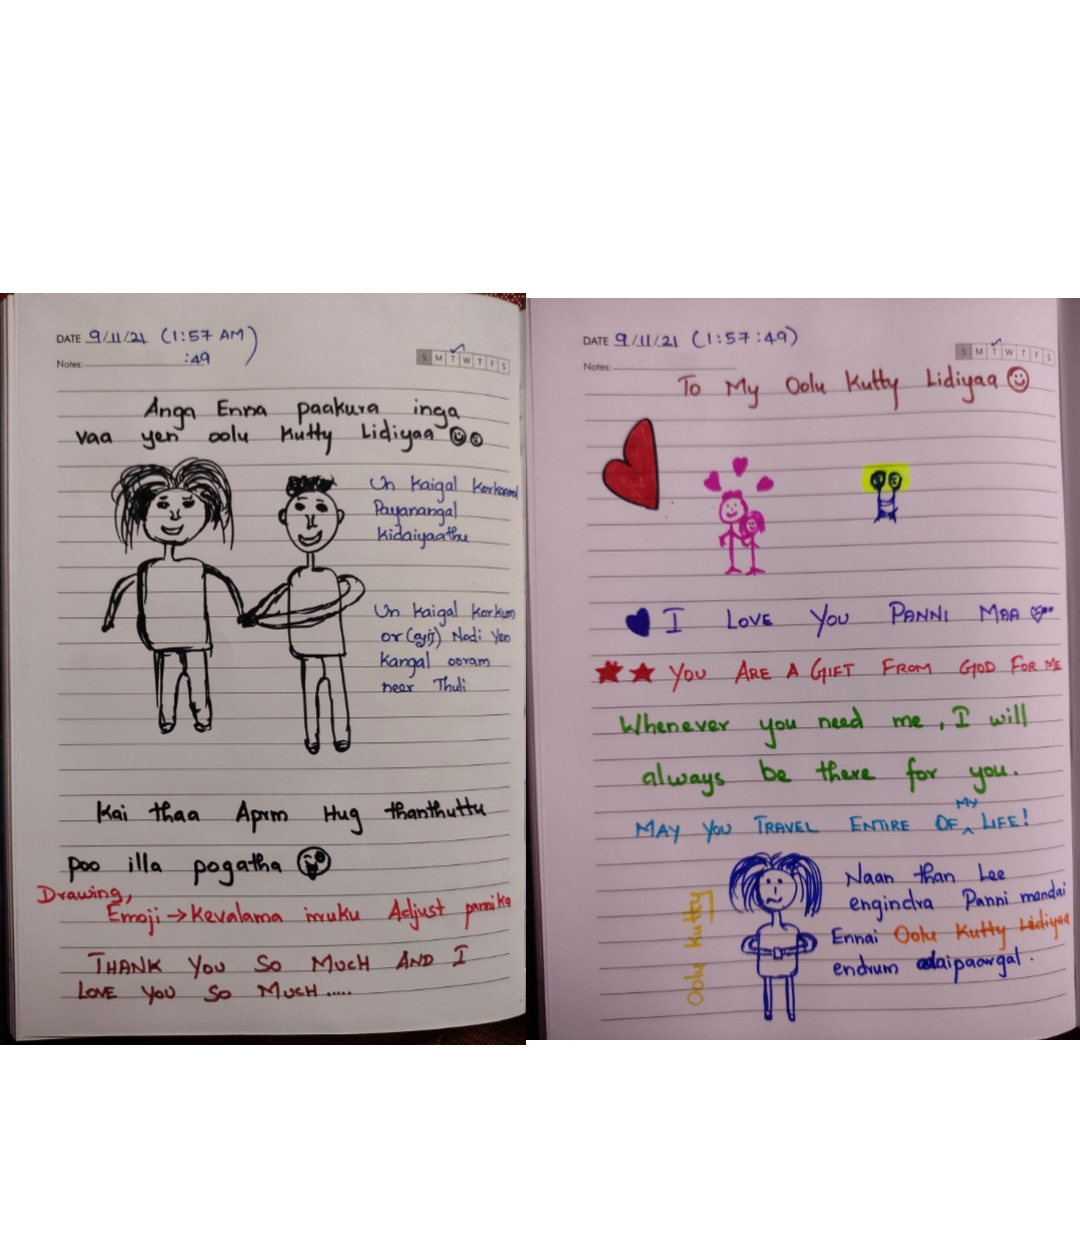 DATE 9/11/21 (1:57 AM)
:49
Notes:
S M T W T F S
Anga Enna paakura inga
vaa yen oolu Kutty Lidiyaa
Un Kaigal
Payanangal
Kidaiyaathu
Un Kaigal Korkum
or (ஒரு) Nodi Yen
Kangal ooram
neer Thuli
Kai thaa Aprm Hug thanthuttu
poo illa pogatha
Drawing,
Emoji → Kevalama iruku Adjust pannika
THANK YOU SO MUCH AND I
LOVE YOU SO MUCH.....
DATE 9/11/21 (1:57:49)
S M T W T F S
Notes:
To My Oolu Kutty Lidiyaa
I LOVE YOU PANNI MAA
YOU ARE A GIFT FROM GOD FOR ME
Whenever you need me, I will
always be there for you.
MAY YOU TRAVEL ENTIRE OF MY LIFE!
Oolu Kutty
Naan than Lee
engindra Panni mandai
Ennai Oolu Kutty Lidiyaa
endrum